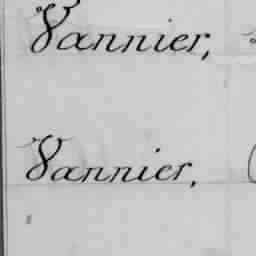 Vannier,
Vannier,